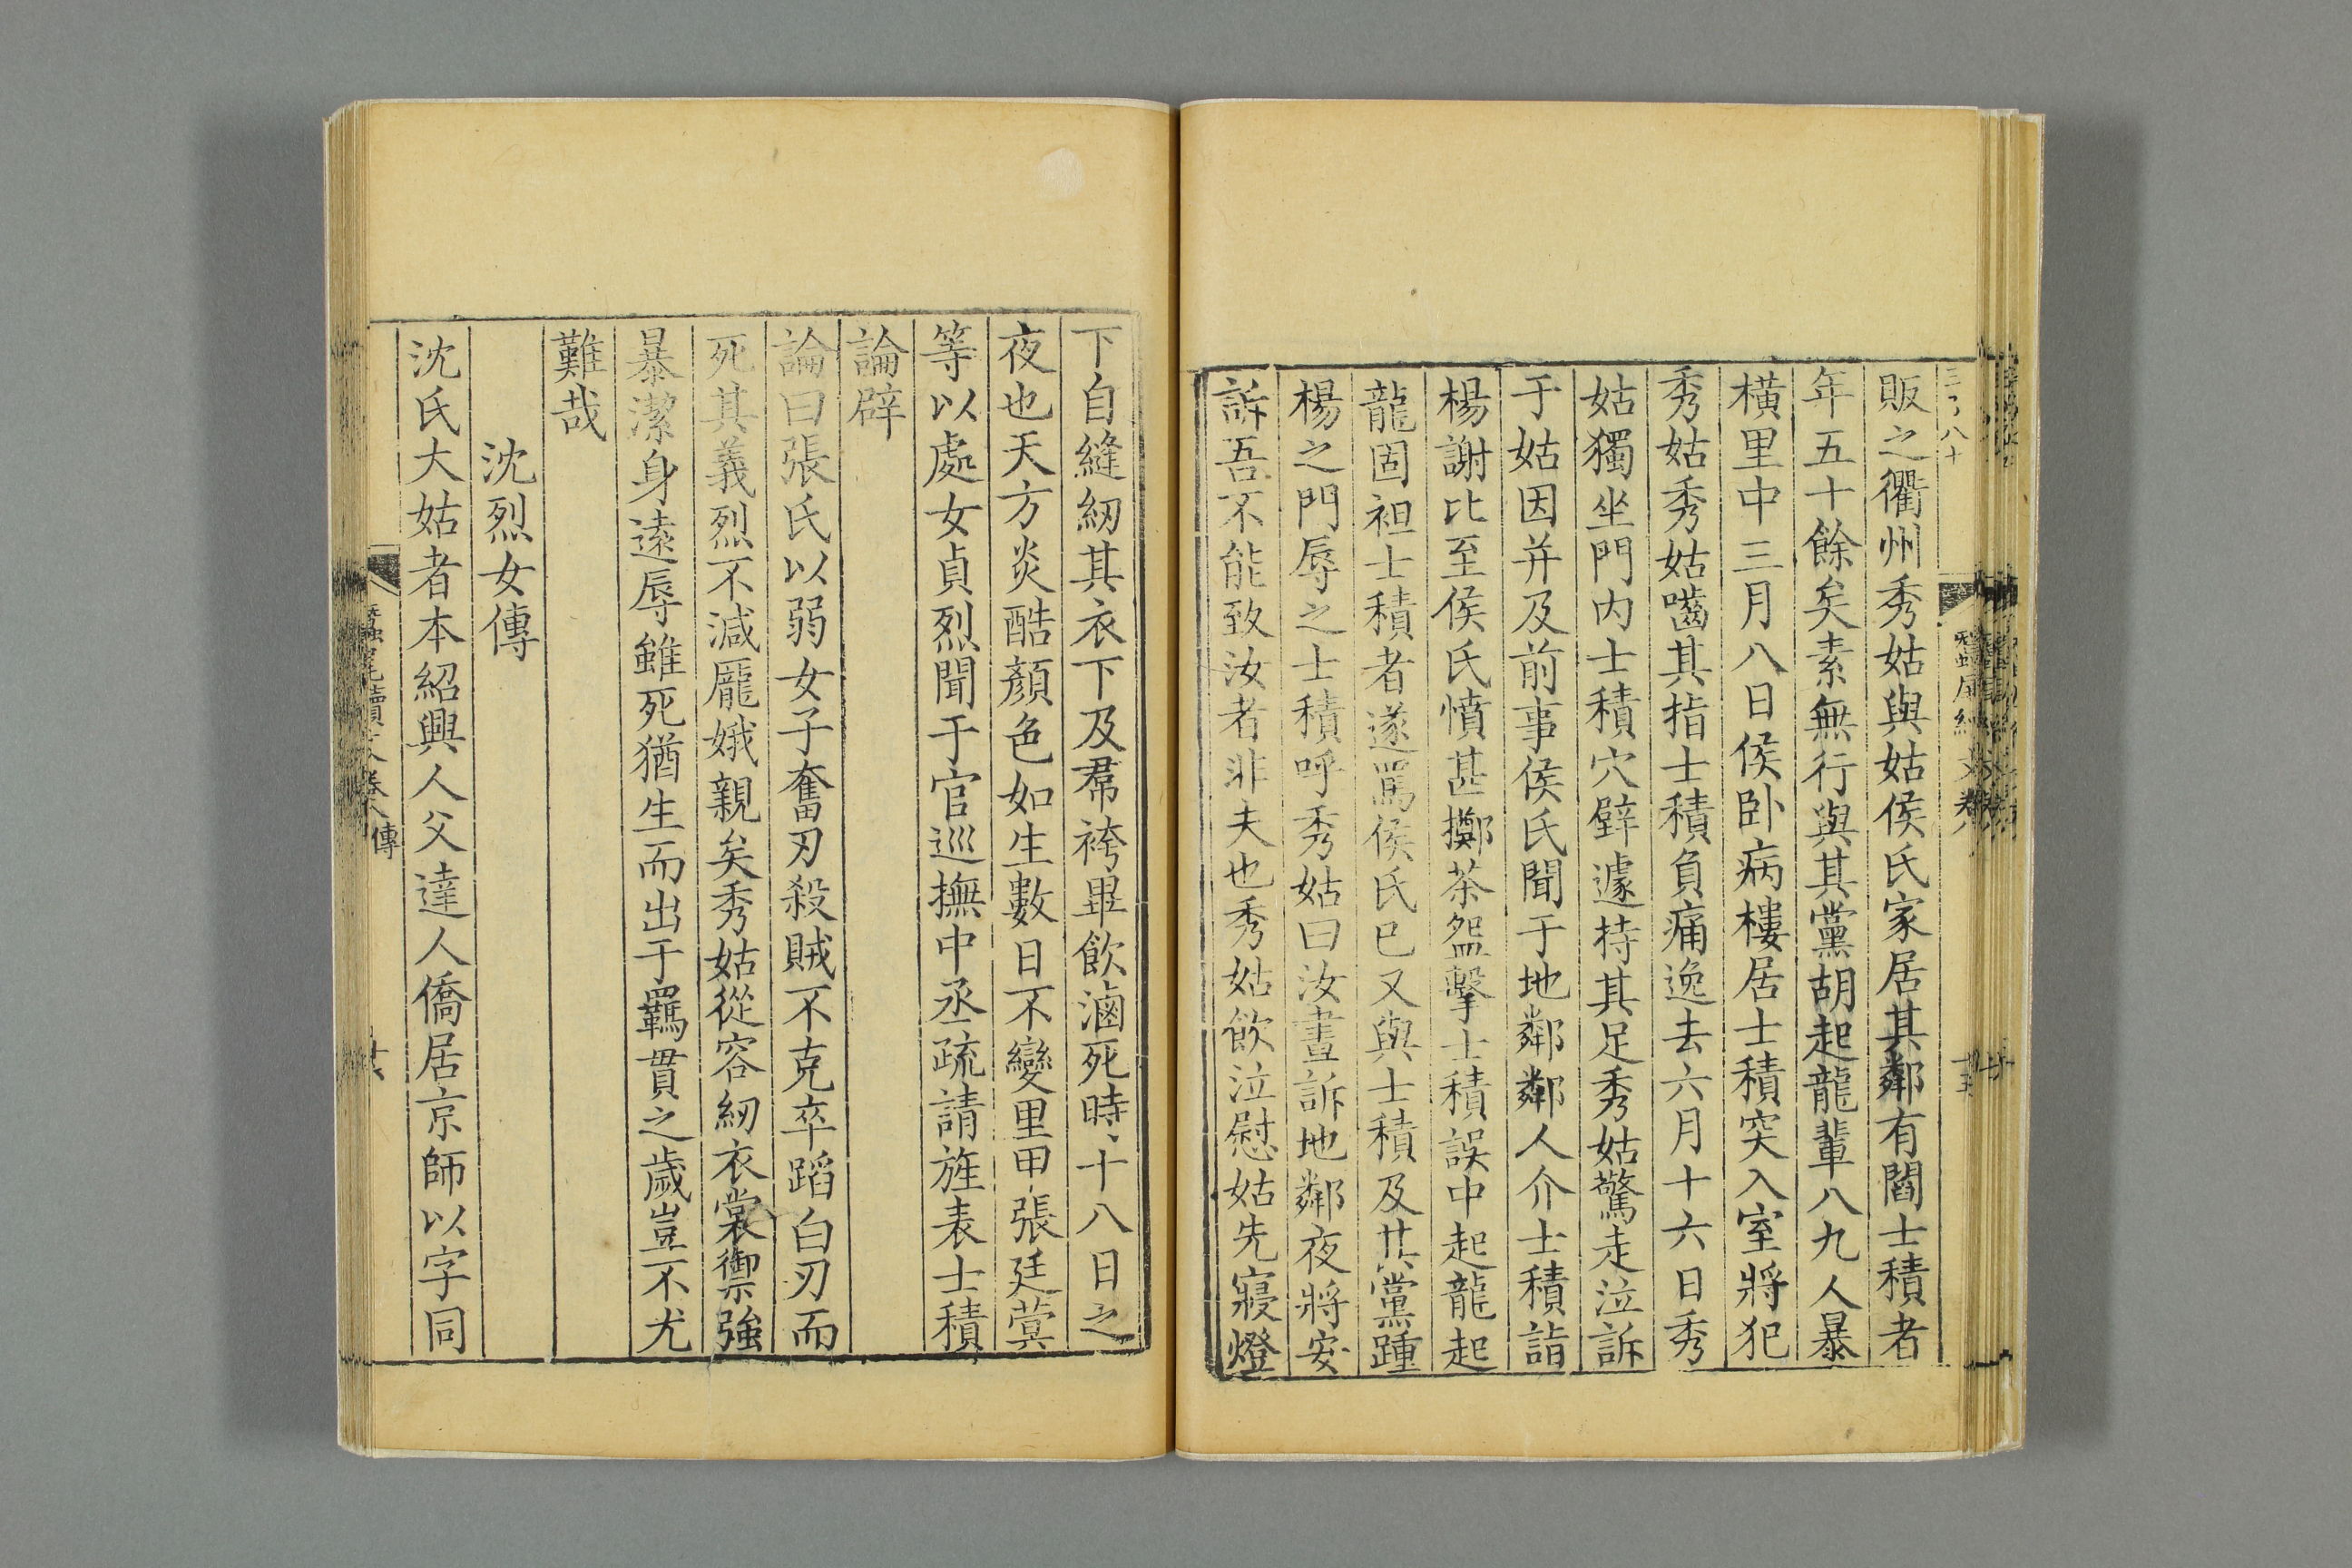 販之衢州秀姑與姑侯氏家居其鄰有閻士積者
年五十餘矣素無行與其黨胡起龍輩八九人暴
橫里中三月八日侯卧病樓居士積突入室將犯
秀姑秀姑嚙其指士積負痛逸去六月十六日秀
姑獨坐門內士積穴壁遽持其足秀姑驚走泣訴
于姑因并及前事侯氏聞于地鄰鄰人介士積詣
楊謝比至侯氏憤甚擲茶盌擊士積誤中起龍起
龍固袒士積者遂罵侯氏已又與士積及其黨踵
楊之門辱之士積呼秀姑曰汝晝訴地鄰夜將安
訴吾不能致汝者非夫也秀姑飲泣慰姑先寢燈
下自縫紉其衣下及帬袴畢飲滷死時十八日之
夜也天方炎酷顏色如生數日不變里甲張廷蓂
等以處女貞烈聞于官巡撫中丞疏請旌表士積
論辟
論曰張氏以弱女子奮刃殺賊不克卒蹈白刃而
死其義烈不減龐娥親矣秀姑從容紉衣裳禦強
暴潔身遠辱雖死猶生而出于羈貫之歲豈不尤
難哉
沈烈女傳
沈氏大姑者本紹興人父達人僑居京師以字同
傳